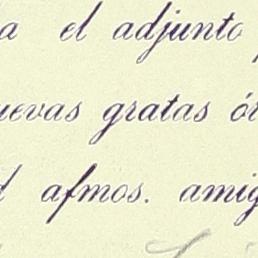 a el adjunto
uevas gratas ór
d afmos. amig